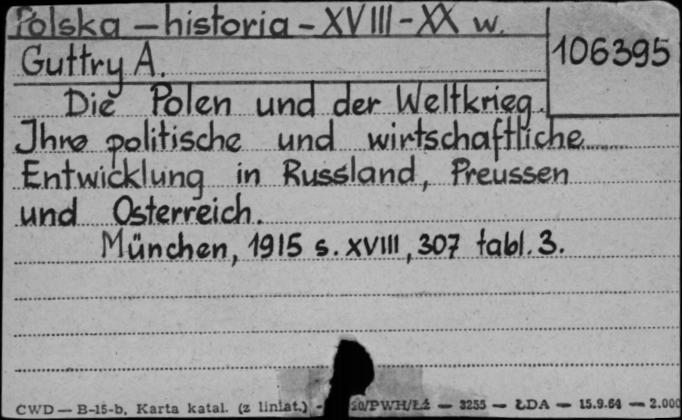 Polska – historia – XVIII – XX w.
106395
Guttry A.
Die Polen und der Weltkrieg.
Ihre politische und wirtschaftliche
Entwicklung in Russland, Preussen
und Osterreich.
München, 1915 s. XVIII, 307 tabl. 3.
CWD — B-15-b, Karta katal. (z liniat.) - /PWH/ŁŻ — 3255 — ŁDA — 15.9.64 — 2.000